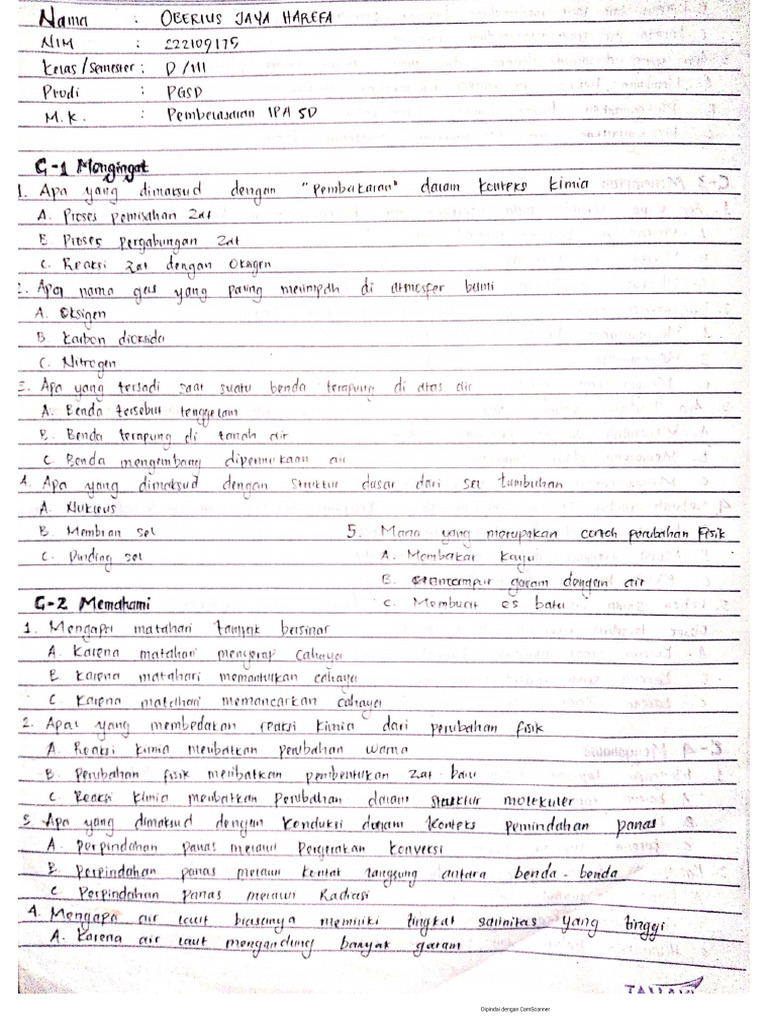 Nama : OBERIUS JAYA HAREFA
NIM : 222109175
Kelas/Semester : D/III
Prodi : PGSD
M.K. : Pembelasaran IPA SD
C-1 Mengingat
1. Apa yang dimaksud dengan "Pembakaran" dalam konteks kimia
A. Proses pemisahan Zat
B. Proses Pergabungan Zat
C. Reaksi Zat dengan Oksigen
2. Apa nama gas yang paling melimpah di atmosfer bumi
A. Oksigen
B Karbon dioksida
C. Nitrogen
3. Apa yang tersadi saat suatu benda terapung di atas air
A. Benda tersebut tenggelam
B. Benda terapung di tanah air
C. Benda mengembang dipermukaan air
4. Apa yang dimaksud dengan struktur dasar dari sel tumbuhan
A. Nukleus
B. Membran sel
C. Dinding sel
5. Mana yang merupakan contoh perubahan Fisik
A. Membakar kayu
B. Mencampur garam dengan air
C. Membuat es batu
C-2 Memahami
1. Mengapa matahari tampak bersinar
A. Karena matahari menyerap cahaya
B Karena matahari memantulkan cahaya
C Karena matahari memancarkan cahaya
2. Apa yang membedakan reaksi kimia dari perubahan fisik
A. Reaksi kimia melibatkan perubahan warna
B. Perubahan fisik melibatkan pembentukan zat baru
C. Reaksi kimia melibatkan Perubahan dalam struktur molekuler
3. Apa yang dimaksud dengan Konduksi dalam Konteks Pemindahan panas
A. Perpindahan panas melalui Pergerakan Konversi
B. Perpindahan panas melalui kontak langsung antara benda-benda
C Perpindahan Panas melalui Radiasi
4. Mengapa air laut biasanya memiliki tingkat salinitas yang tinggi
A. Karena air laut mengandung banyak garam
Dipindai dengan CamScanner